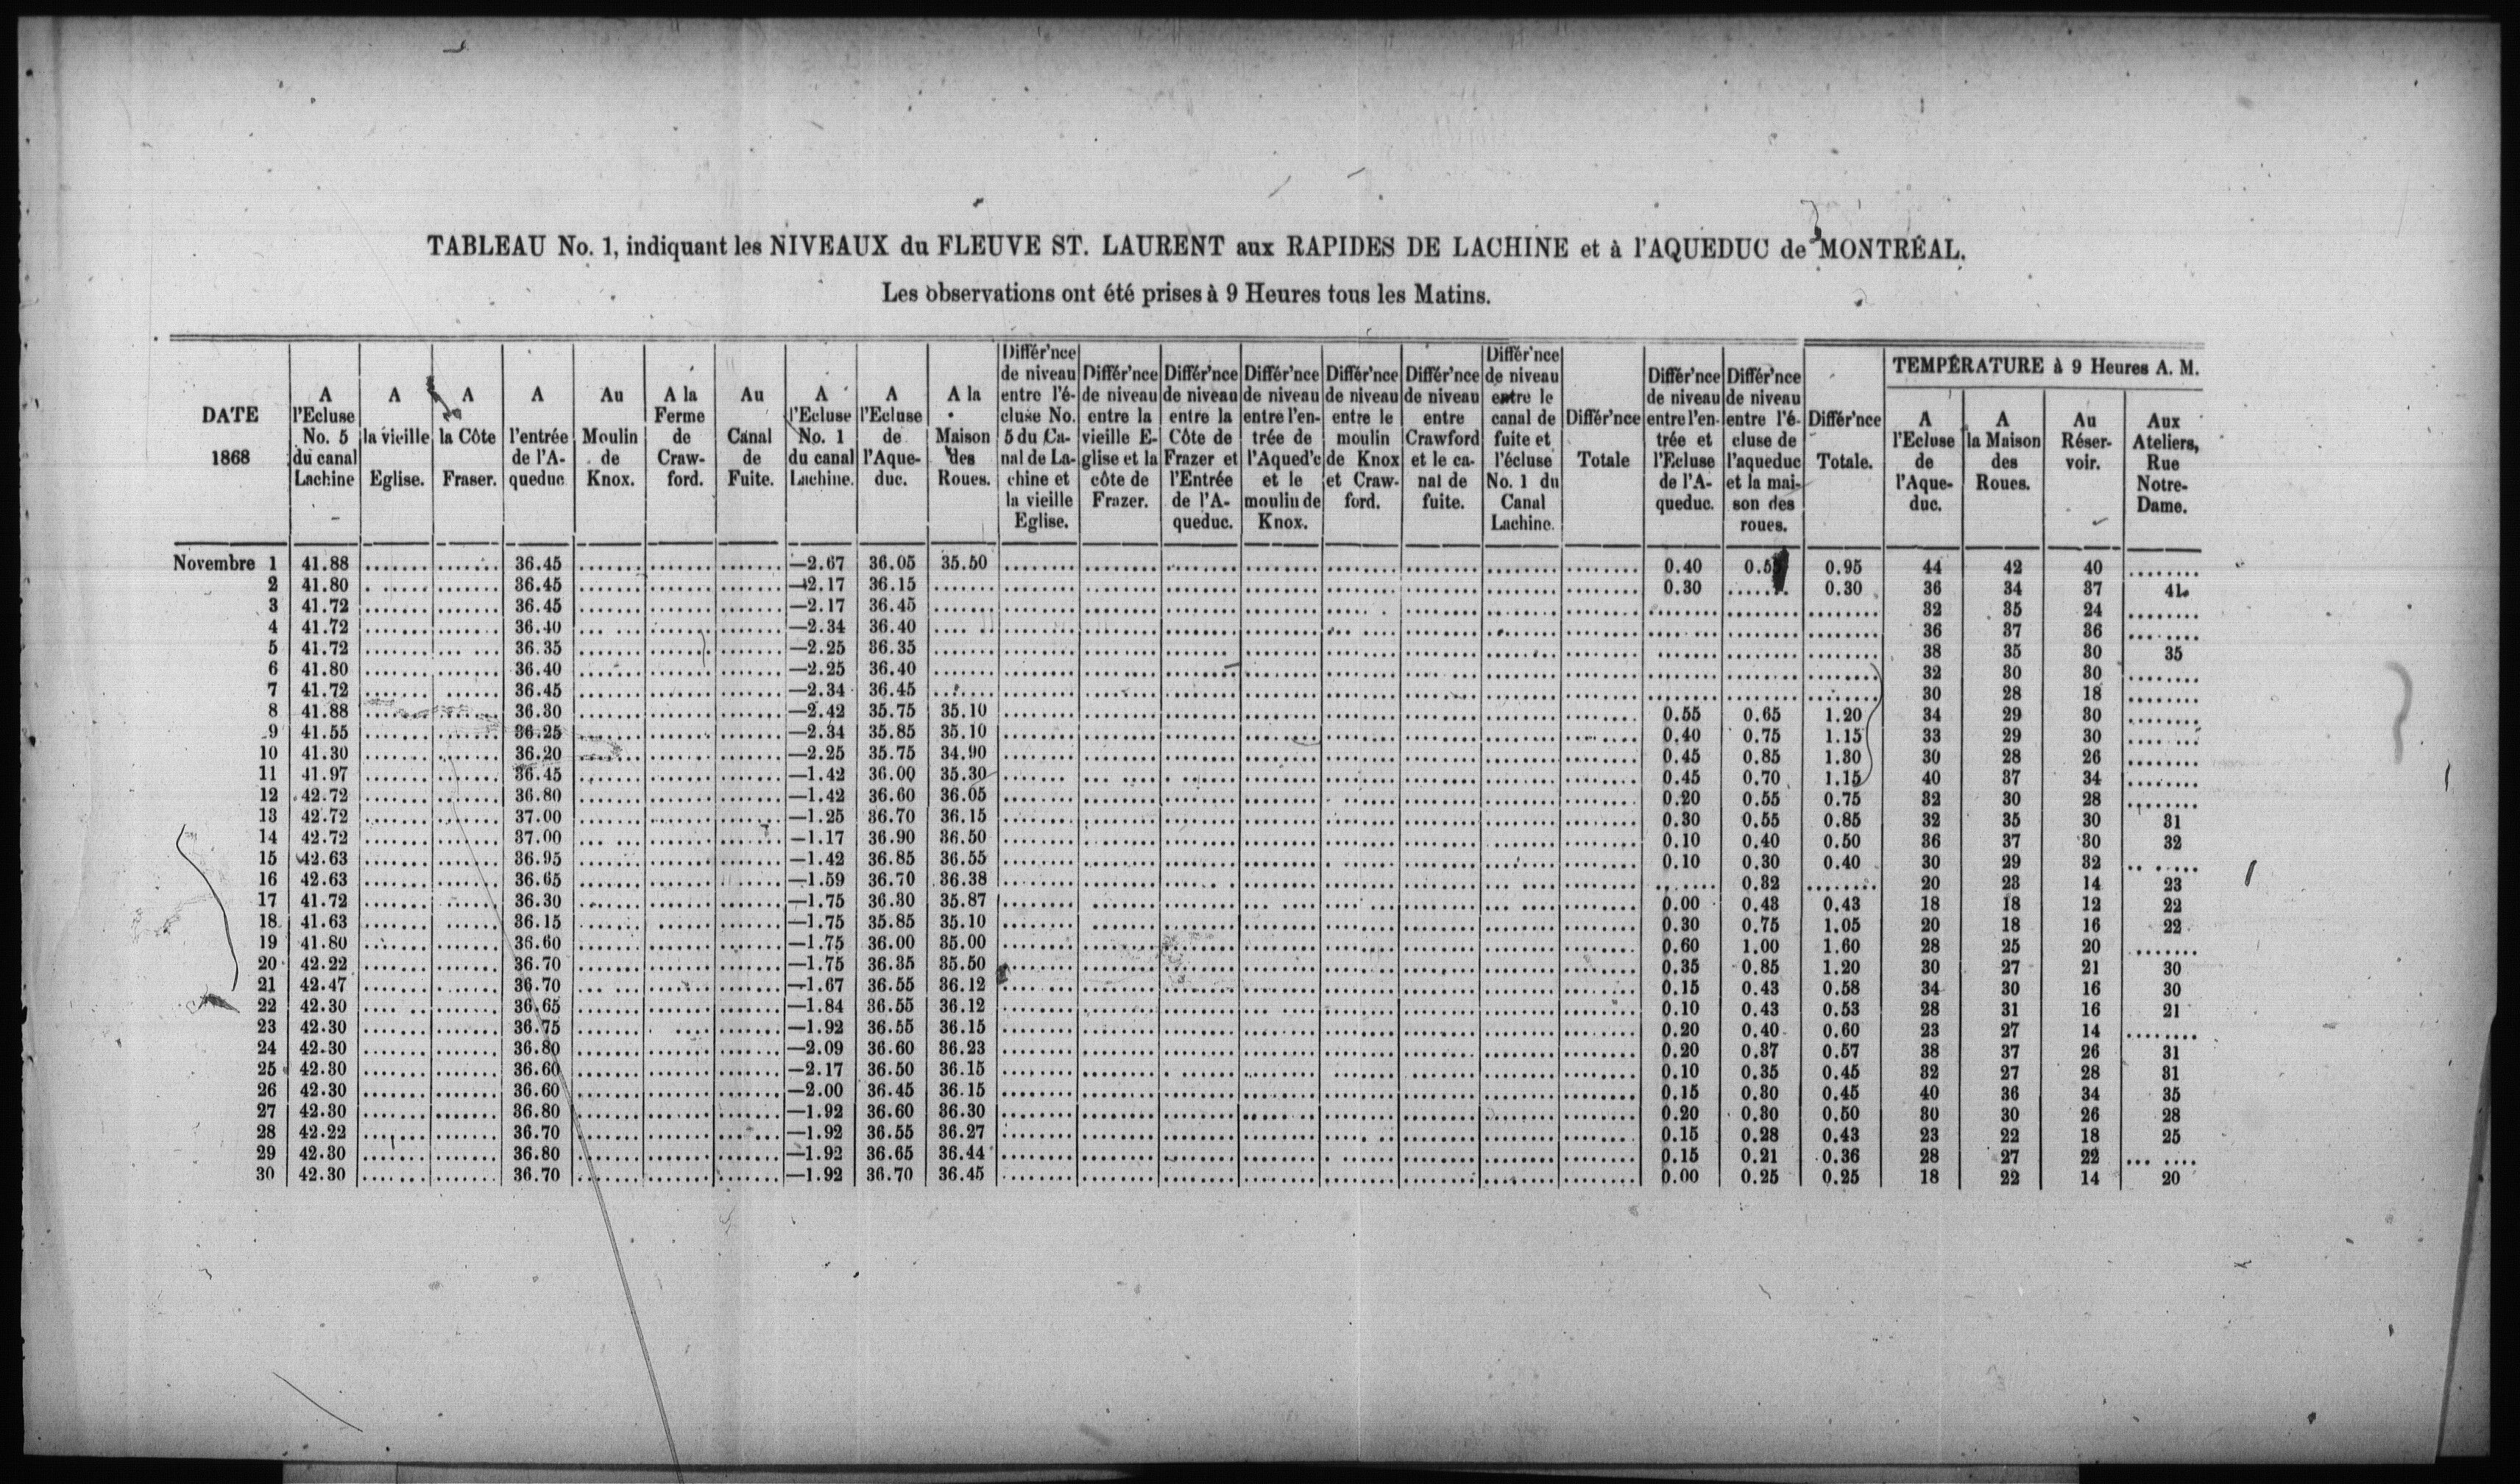 TABLEAU No. 1, indiquant les NIVEAUX du FLEUVE ST. LAURENT aux RAPIDES DE LACHINE et à l'AQUEDUC de MONTRÉAL.
Les observations ont été prises à 9 Heures tous les Matins.
DATE 1868
A l'Ecluse No. 5 du canal Lachine
A la vieille Eglise.
A la Côte Fraser.
A l'entrée de l'A-queduc
Au Moulin de Knox.
A la Ferme de Craw-ford.
Au Canal de Fuite.
A l'Ecluse No. 1 du canal Lachine.
A l'Ecluse de l'Aque-duc.
A la Maison des Roues.
Différ'nce de niveau entre l'é-cluse No. 5 du Ca-nal de La-chine et la vieille Eglise.
Différ'nce de niveau entre la vieille E-glise et la côte de Frazer.
Différ'nce de niveau entre la Côte de Frazer et l'Entrée de l'A-queduc.
Différ'nce de niveau entre l'en-trée de l'Aqued'c et le moulin de Knox.
Différ'nce de niveau entre le moulin de Knox et Craw-ford.
Différ'nce de niveau entre Crawford et le ca-nal de fuite.
Différ'nce de niveau entre le canal de fuite et l'écluse No. 1 du Canal Lachine.
Différ'nce Totale
Différ'nce de niveau entre l'en-trée et l'Ecluse de l'A-queduc.
Différ'nce de niveau entre l'é-cluse de l'aqueduc et la mai-son des roues.
Différ'nce Totale.
TEMPÉRATURE à 9 Heures A. M.
A l'Ecluse de l'Aque-duc.
A la Maison des Roues.
Au Réser-voir.
Aux Ateliers, Rue Notre-Dame.
Novembre 1 41.88 36.45 —2.67 36.05 35.50 0.40 0.95 44 42 40
2 41.80 36.45 —2.17 36.15 0.30 0.30 36 34 37 41
3 41.72 36.45 —2.17 36.45 32 35 24
4 41.72 36.40 —2.34 36.40 36 37 36
5 41.72 36.35 —2.25 36.35 38 35 30 35
6 41.80 36.40 —2.25 36.40 32 30 30
7 41.72 36.45 —2.34 36.45 30 28 18
8 41.88 36.30 —2.42 35.75 35.10 0.55 0.65 1.20 34 29 30
9 41.55 36.25 —2.34 35.85 35.10 0.40 0.75 1.15 33 29 30
10 41.30 36.20 —2.25 35.75 34.90 0.45 0.85 1.30 30 28 26
11 41.97 36.45 —1.42 36.00 35.30 0.45 0.70 1.15 40 37 34
12 42.72 36.80 —1.42 36.60 36.05 0.20 0.55 0.75 32 30 28
13 42.72 37.00 —1.25 36.70 36.15 0.30 0.55 0.85 32 35 30 31
14 42.72 37.00 —1.17 36.90 36.50 0.10 0.40 0.50 36 37 30 32
15 42.63 36.95 —1.42 36.85 36.55 0.10 0.30 0.40 30 29 32
16 42.63 36.65 —1.59 36.70 36.38 0.32 20 23 14 23
17 41.72 36.30 —1.75 36.30 35.87 0.00 0.43 0.43 18 18 12 22
18 41.63 36.15 —1.75 35.85 35.10 0.30 0.75 1.05 20 18 16 22
19 41.80 36.60 —1.75 36.00 35.00 0.60 1.00 1.60 28 25 20
20 42.22 36.70 —1.75 36.35 35.50 0.35 0.85 1.20 30 27 21 30
21 42.47 36.70 —1.67 36.55 36.12 0.15 0.43 0.58 34 30 16 30
22 42.30 36.65 —1.84 36.55 36.12 0.10 0.43 0.53 28 31 16 21
23 42.30 36.75 —1.92 36.55 36.15 0.20 0.40 0.60 23 27 14
24 42.30 36.80 —2.09 36.60 36.23 0.20 0.37 0.57 38 37 26 31
25 42.30 36.60 —2.17 36.50 36.15 0.10 0.35 0.45 32 27 28 31
26 42.30 36.60 —2.00 36.45 36.15 0.15 0.30 0.45 40 36 34 35
27 42.30 36.80 —1.92 36.60 36.30 0.20 0.30 0.50 30 30 26 28
28 42.22 36.70 —1.92 36.55 36.27 0.15 0.28 0.43 23 22 18 25
29 42.30 36.80 —1.92 36.65 36.44 0.15 0.21 0.36 28 27 22
30 42.30 36.70 —1.92 36.70 36.45 0.00 0.25 0.25 18 22 14 20